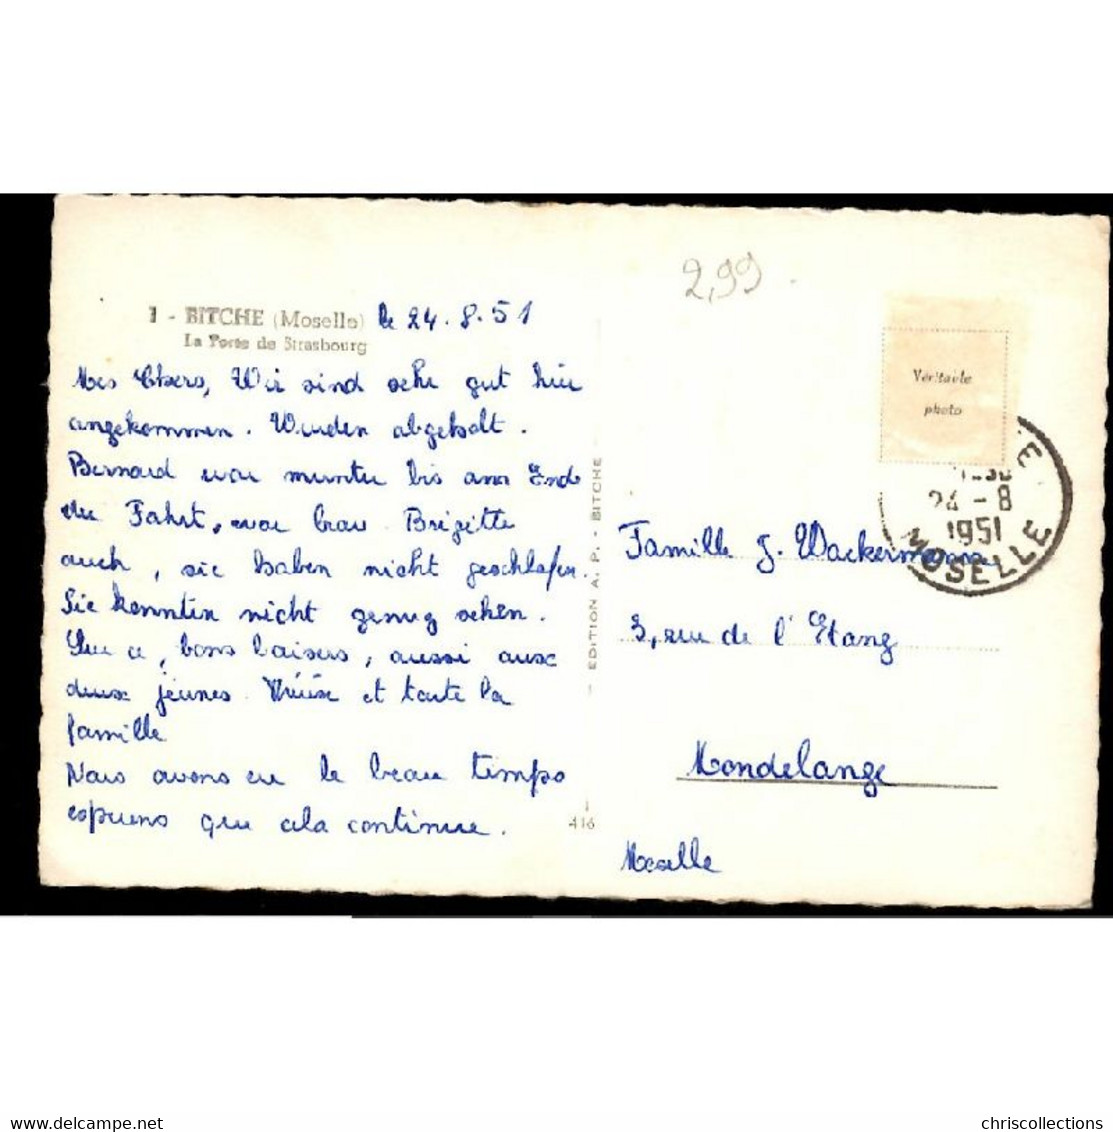 1 - BITCHE (Moselle) le 24.8.51
La Porte de Strasbourg
Mes Chers, Wir sind sehr gut hier
angekommen. Wurden abgeholt.
Bernard war munter bis am Ende
der Fahrt, war brav. Brigitte
auch, sie haben nicht geschlafen.
Sie konnten nicht genug sehen.
Sur ce, bons baisers, aussi aux
deux jeunes. Thérèse et toute la
famille
Nous avons eu le beau temps
espérons que cela continue.
EDITION A. P. - BITCHE
416
2,99
Véritable
photo
24 - 8
1951
MOSELLE
Famille J. Wackermann
3, rue de l'Etang
Mondelange
Moselle
delcampe.net
chriscollections